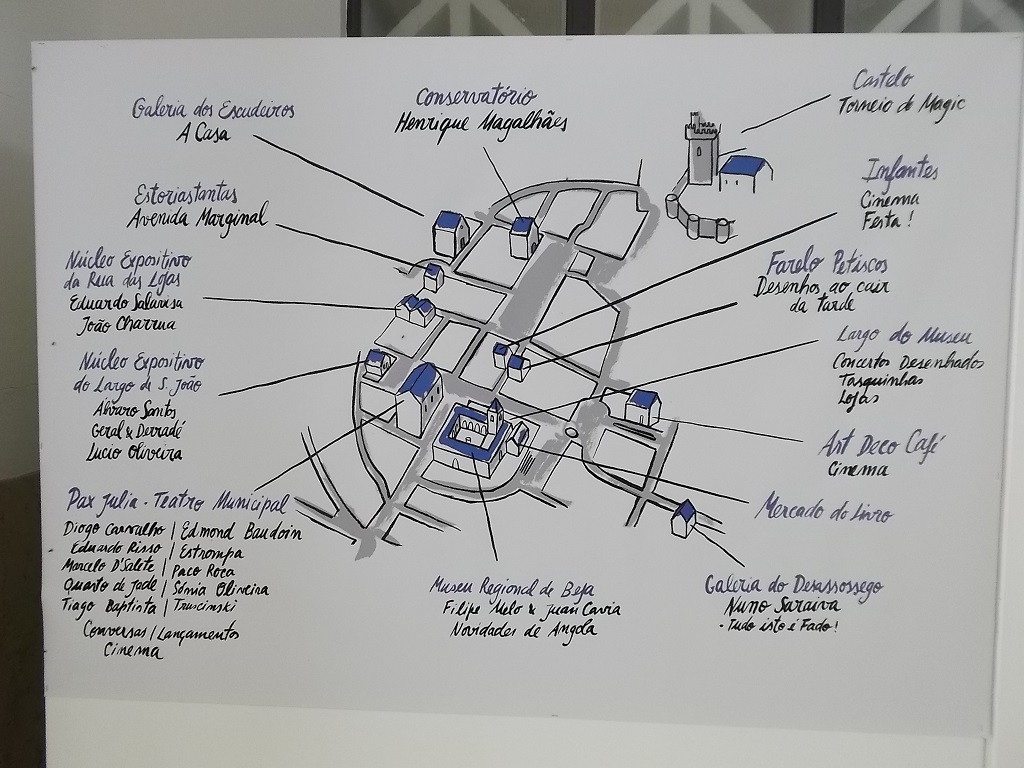 Galeria dos Escudeiros
A Casa
Conservatório
Henrique Magalhães
Castelo
Torneio de Magic
Estoriastantas
Avenida Marginal
Infantes
Cinema
Festa!
Núcleo Expositivo
da Rua das Lojas
Eduardo Salavisa
João Charrua
Farelo Petiscos
Desenhos ao cair
da tarde
Núcleo Expositivo
do Largo de S. João
Álvaro Santos
Geral & Derradé
Lucio Oliveira
Largo do Museu
Concertos Desenhados
Tasquinhas
Lojas
Art Deco Café
Cinema
Pax Julia - Teatro Municipal
Diogo Carvalho | Edmond Baudoin
Eduardo Risso | Estrompa
Marcelo D'Salete | Paco Roca
Quarto de Jade | Sónia Oliveira
Tiago Baptista | Truscinski
Conversas | Lançamentos
Cinema
Mercado do Livro
Museu Regional de Beja
Filipe Melo & Juan Cavia
Novidades de Angola
Galeria do Desassossego
Nuno Saraiva
- Tudo isto é Fado!